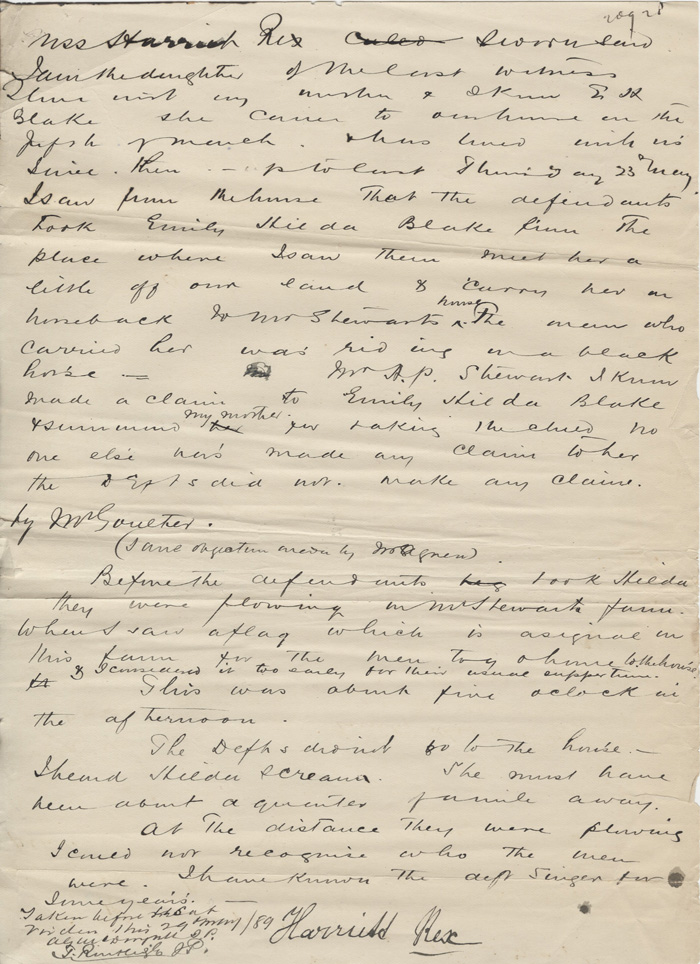 Miss Harriet Rex called sworn said
I am the daughter of the last witness
I live with my mother & I know E H
Blake she came to our house on the
fifth of March & has lived with us
since then – up to last Thursday 23rd May
I saw from the house That the defendants
took Emily Hilda Blake from the
place where I saw them meet her a
little off our land & carry her on
horseback to Mr Stewarts house. The man who
carried her was riding on a black
horse – Mr A.P. Stewart I know
made a claim to Emily Hilda Blake
& summoned my mother for taking the child no
one else has made any claim to her
the Defts did not make any claim.
by Mr Coulter.
(same objection made by Mr Agnew)
Before the defendants took Hilda
they were plowing on Mr Stewarts farm.
When I saw a flag which is a signal on
this farm for the men to go home to the house
& I considered it too early for their usual supper time.
This was about five oclock in
the afternoon.
The Defts did not go to the house. –
I heard Hilda scream. She must have
been about a quarter mile away.
At The distance they were plowing
I could not recognise who the men
were. I have known the deft Singer for
some years. –
Taken before us at
Virden this 29 May /89
J.P.
J.P.
Harriett Rex